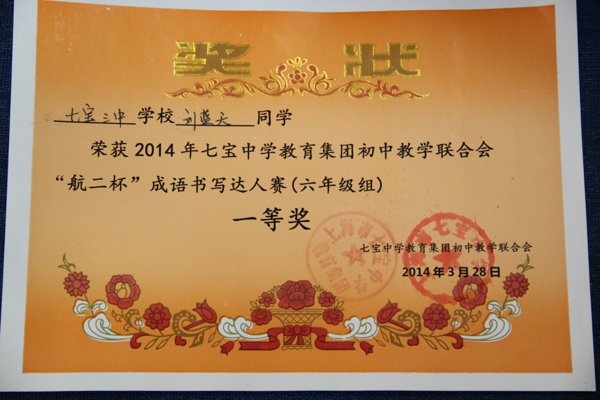 奖 状
七宝三中学校刘蓝天 同学
荣获2014年七宝中学教育集团初中教学联合会
“航二杯”成语书写达人赛(六年级组)
一等奖
七宝中学教育集团初中教学联合会
2014年3月28日